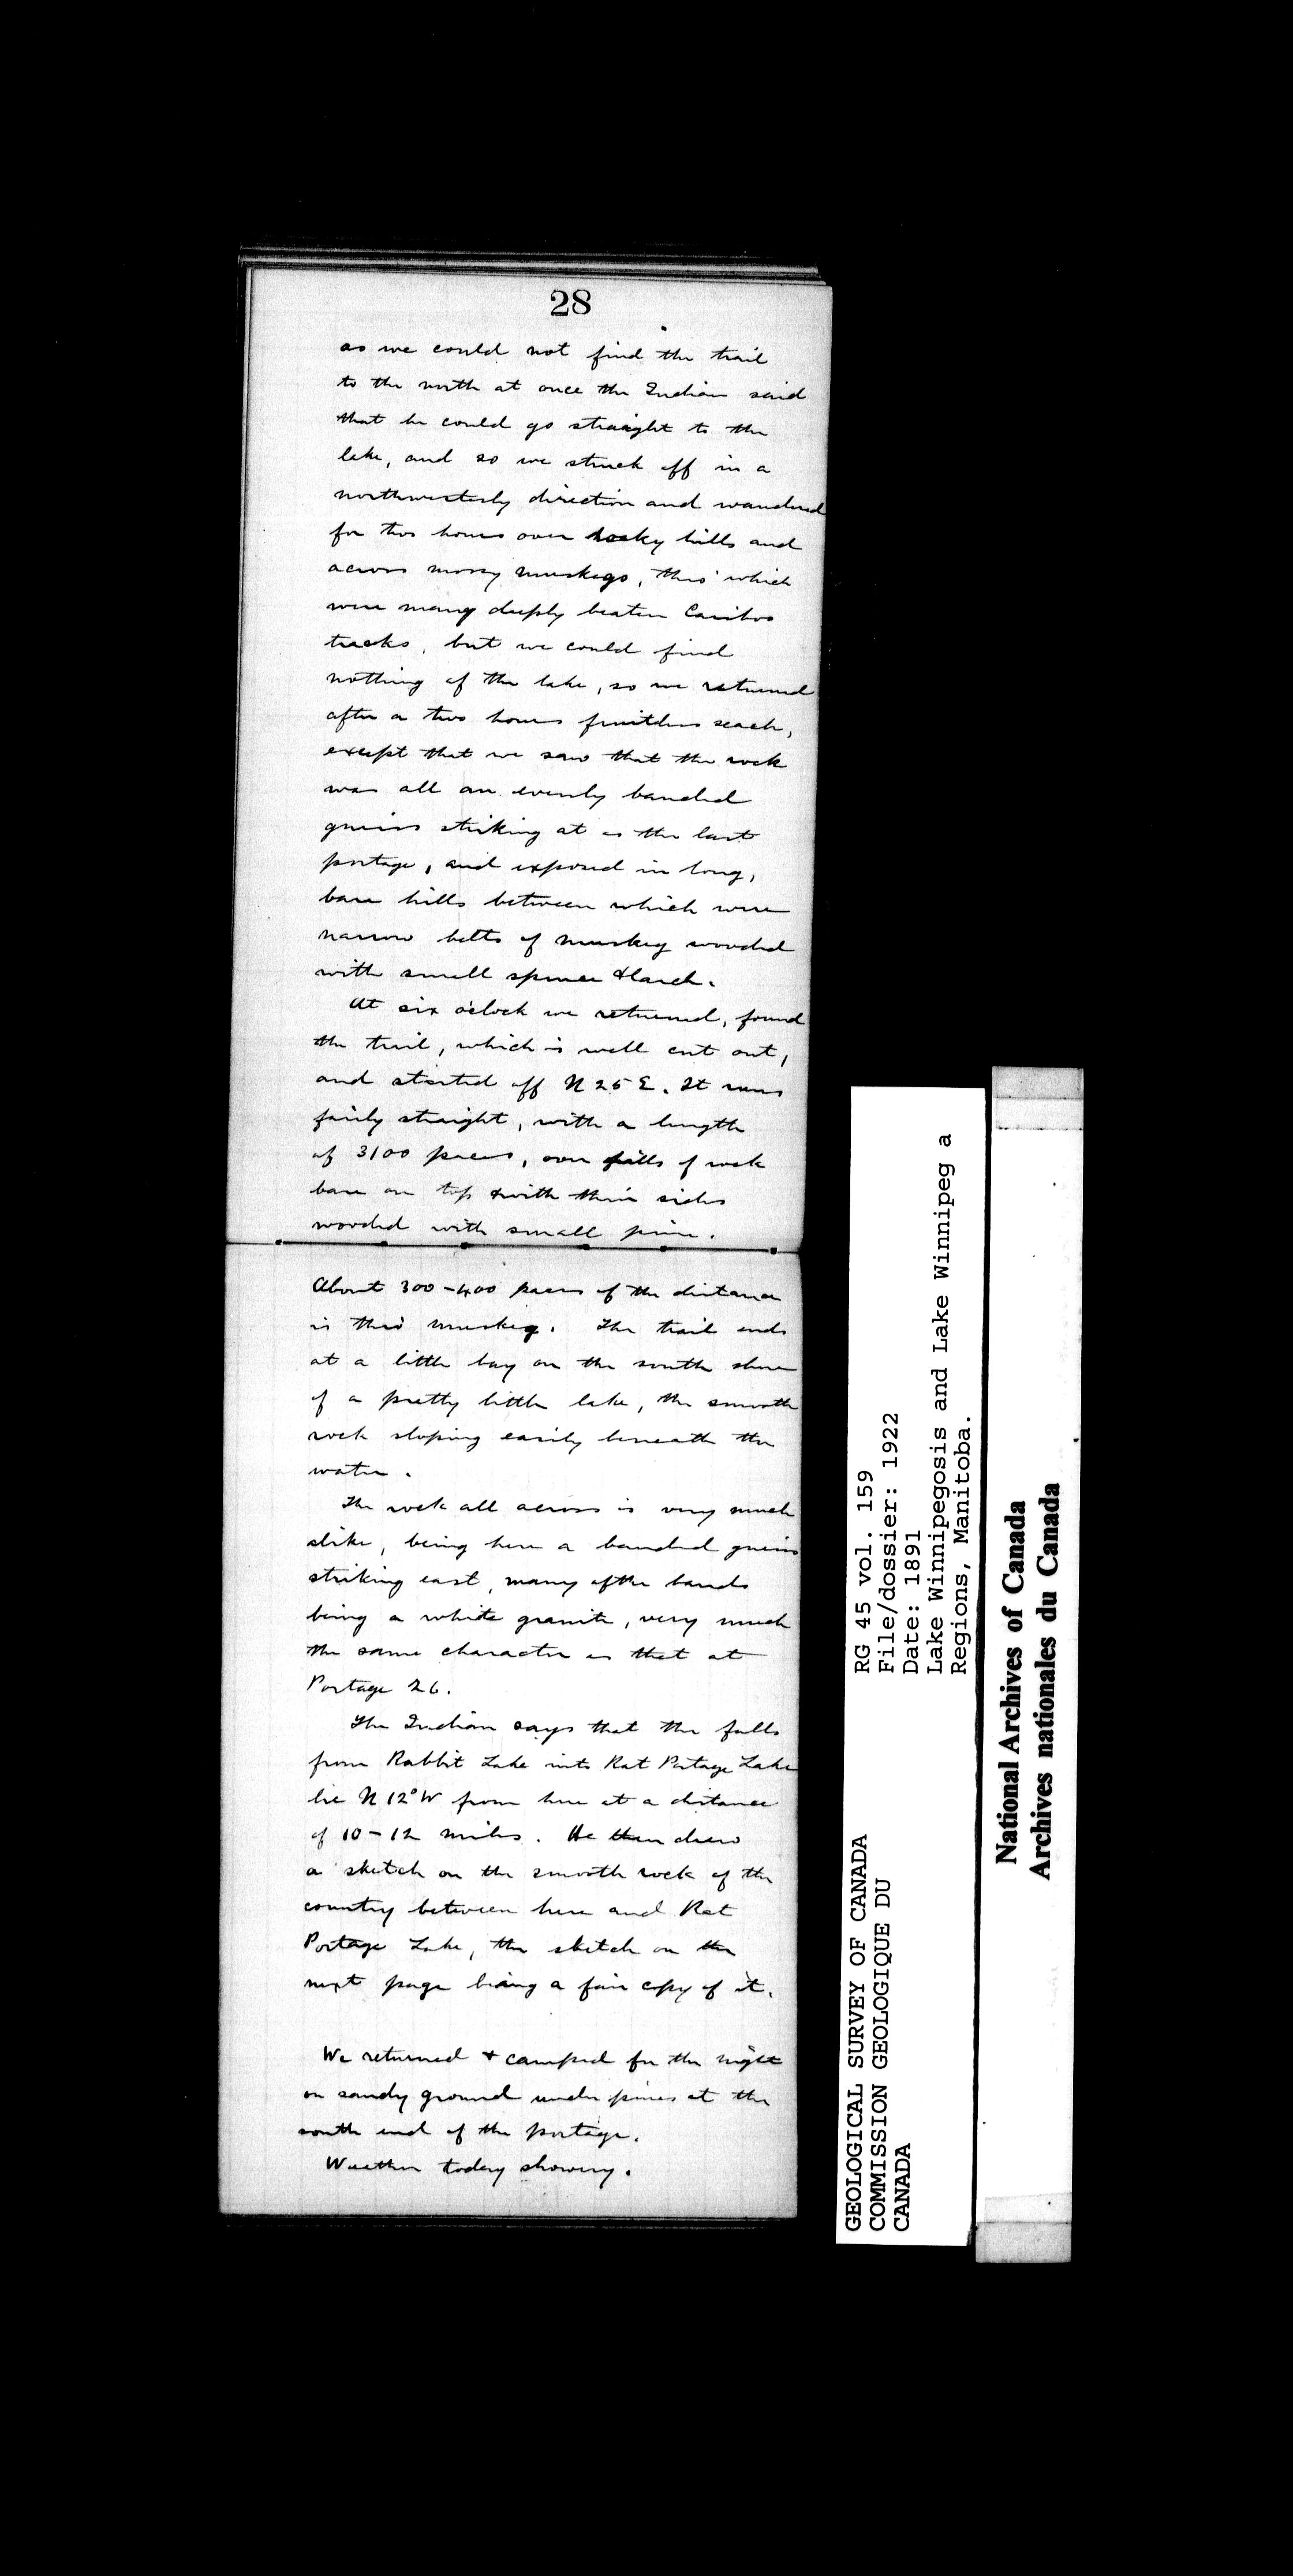 28
as we could not find the trail
to the north at once the Indian said
that he could go straight to the
lake, and so we struck off in a
northwesterly direction and wandered
for two hours over rocky hills and
across mossy muskegs, thro' which
were many deeply beaten Cariboo
tracks, but we could find
nothing of the lake, so we returned
after a two hours fruitless seach,
except that we saw that the rock
was all an evenly banded
gneiss striking at as the last
portage, and exposed in long,
bare hills between which were
narrow belts of muskeg wooded
with small spruce & larch.
At six o'clock we returned, found
the trail, which is well cut out,
and started off N 25 E. It runs
fairly straight, with a length
of 3100 paces, over hills of rock
bare on top & with their sides
wooded with small pine.
About 300 - 400 paces of the distance
is thro' muskeg. The trail ends
at a little bay on the south shore
of a pretty little lake, the smooth
rock sloping easily beneath the
water.
The rock all across is very much
alike, being here a banded gneiss
striking east, many of the bands
being a white granite, very much
the same character as that at
Portage 26.
The Indian says that the falls
from Rabbit Lake into Rat Portage Lake
lie N 12° W from here at a distance
of 10 - 12 miles. He then drew
a sketch on the smooth rock of the
country between here and Rat
Portage Lake, the sketch on the
next page being a fair copy of it.
We returned & camped for the night
on sandy ground under pines at the
south end of the portage.
Weather today showery.
GEOLOGICAL SURVEY OF CANADA
COMMISSION GEOLOGIQUE DU
CANADA
RG 45 vol. 159
File/dossier: 1922
Date: 1891
Lake Winnipegosis and Lake Winnipeg a
Regions, Manitoba.
National Archives of Canada
Archives nationales du Canada